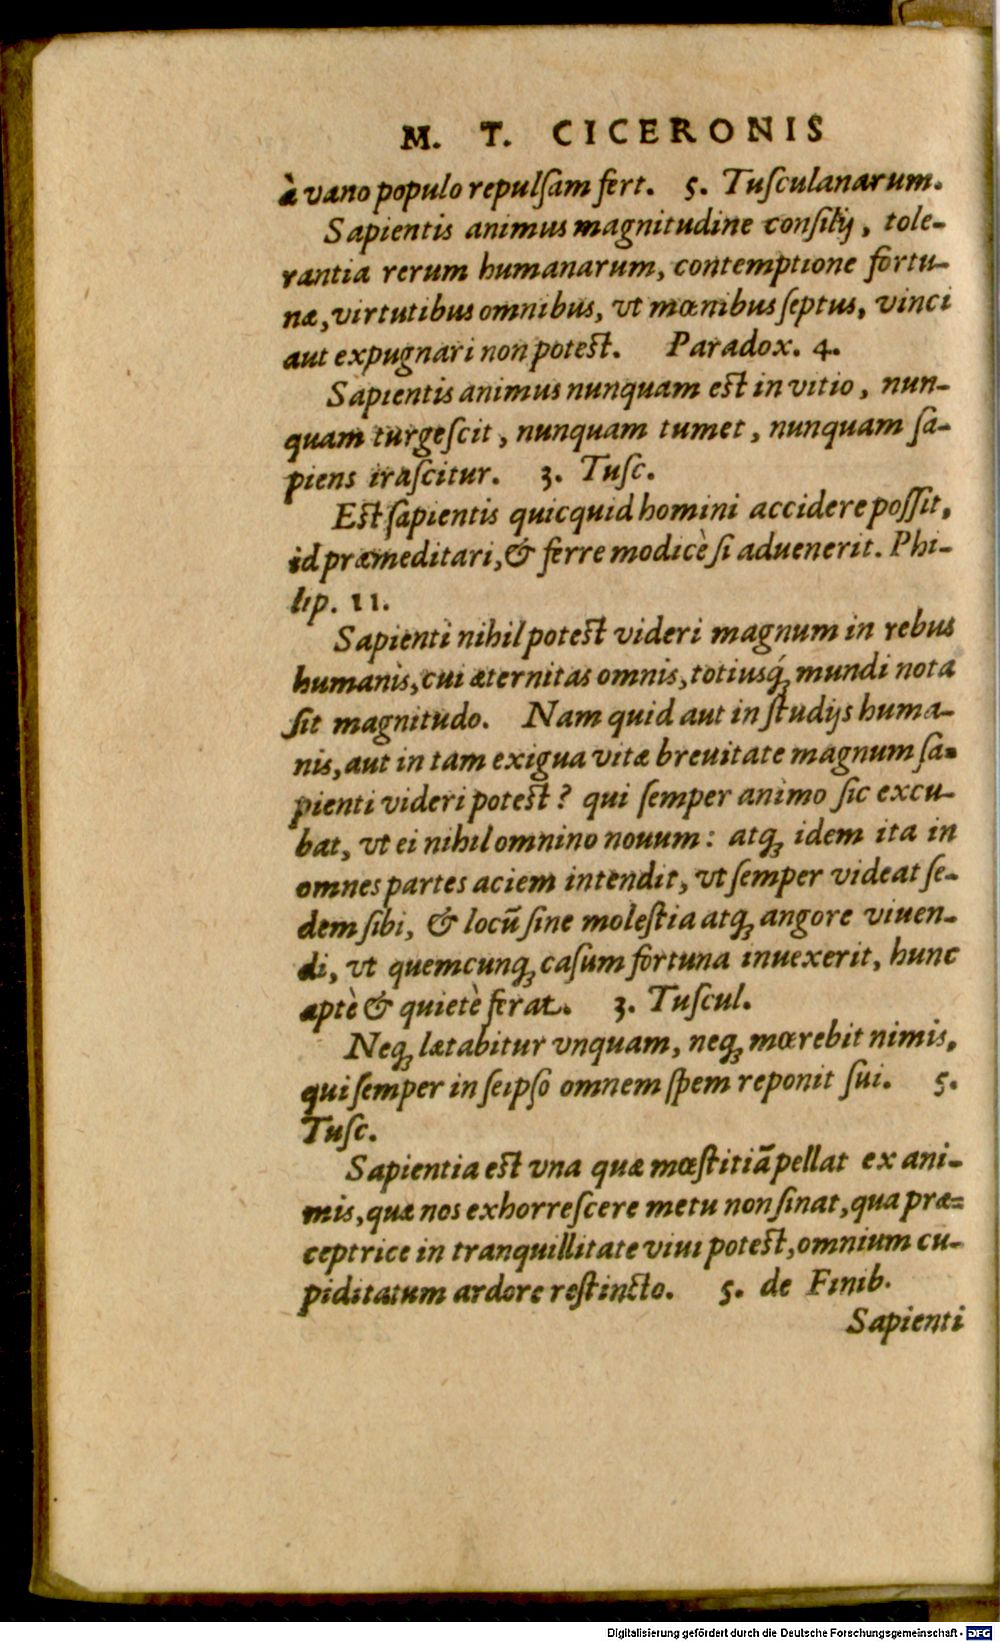 M. T. CICERONIS
à vano populo repulſam fert. 5. Tuſculanarum.
Sapientis animus magnitudine conſilij, tole-
rantia rerum humanarum, contemptione fortu-
næ, virtutibus omnibus, vt mœnibus ſeptus, vinci
aut expugnari non poteſt. Paradox. 4.
Sapientis animus nunquam eſt in vitio, nun-
quam turgeſcit, nunquam tumet, nunquam ſa-
piens iraſcitur. 3. Tuſc.
Eſt ſapientis quicquid homini accidere poſſit,
id præmeditari, & ferre modicè ſi aduenerit. Phi-
lip. 11.
Sapienti nihil poteſt videri magnum in rebus
humanis, cui æternitas omnis, totiusq́; mundi nota
ſit magnitudo. Nam quid aut in ſtudijs huma-
nis, aut in tam exigua vitæ breuitate magnum ſa-
pienti videri poteſt? qui ſemper animo ſic excu-
bat, vt ei nihil omnino nouum: atq; idem ita in
omnes partes aciem intendit, vt ſemper videat ſe-
dem ſibi, & locũ ſine moleſtia atq; angore viuen-
di, vt quemcunq; caſum fortuna inuexerit, hunc
aptè & quietè ferat. 3. Tuſcul.
Neq; lætabitur vnquam, neq; mœrebit nimis,
qui ſemper in ſeipſo omnem ſpem reponit ſui. 5.
Tuſc.
Sapientia eſt vna quæ mœſtitiã pellat ex ani-
mis, quæ nos exhorreſcere metu non ſinat, qua præ-
ceptrice in tranquillitate viui poteſt, omnium cu-
piditatum ardore reſtincto. 5. de Finib.
Sapienti
Digitalisierung gefördert durch die Deutsche Forschungsgemeinschaft - DFG